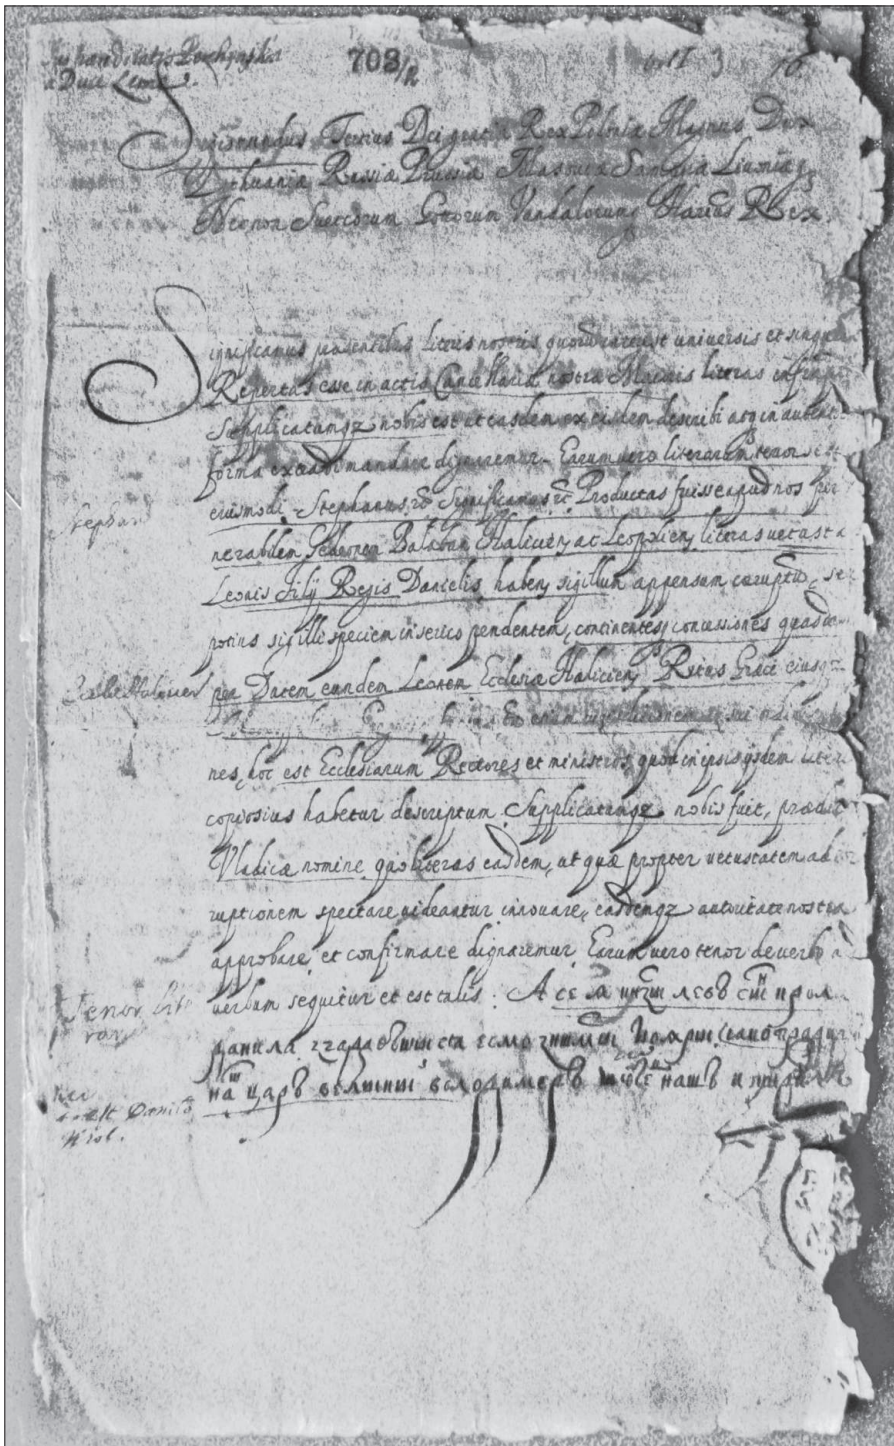 a Duce Leone
703/2
Sigismundus Tertius Dei gratia Rex Poloniæ Magnus Dux
Lithuaniæ Russiæ Prussiæ Masoviæ Samogitiæ Livoniæqz
Necnon Suecorum Gottorum Vandalorumqz Hærius Rex
Significamus præsentibus literis nostris quorum interest universis et singulis
Repertas esse in actis Cancellariæ nostræ Maioris literas infra
Supplicatumqz nobis est ut easdem ex eisdem describi atqz in autent
forma extradi mandare dignaremur. Earum vero literarum tenor est
eiusmodi. Stephanus etc Significamus etc Productas fuisse apud nos per
nerabilem Gedeonem Balaban Halicien, ac Leopolien, literas vetustas
Leonis filij Regis Danielis haben, sigillum appensum coruptum, se
potius sigilli speciem in sericis pendentem, continentes concessiones quasdam
per Ducem eundem Leonem Ecclesiæ Halicien, Ritus Græci eiusqz
nes, hoc est Ecclesiarum Rectores et ministros, quod in ipsis ijsdem literis
copiosius habetur descriptum. Supplicatumqz nobis fuit, prædicti
Vladicæ nomine, quo literas easdem, ut quæ propter vetustatem ad cor
ruptionem spectare videantur innovare, easdemqz autoritate nostra
approbare, et confirmare dignaremur. Earum vero tenor de verbo ad
verbum sequitur et est talis: А се я кнзь левъ снъ крол
данила
на царъ великии володимеръ нашъ и
Stephan
Tenor lite
rar